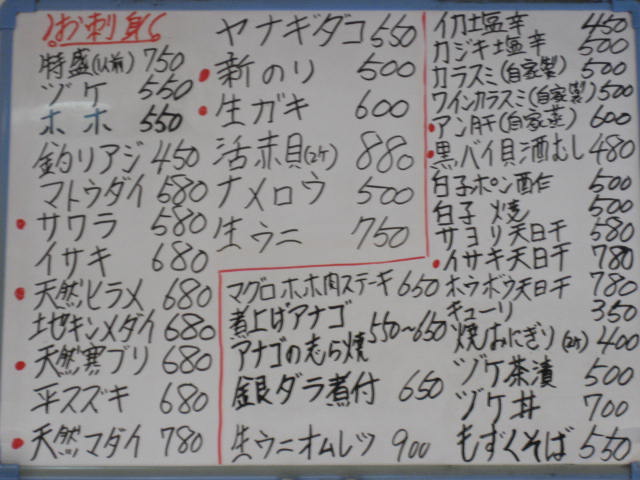 お刺身
特盛(1人前) 750
ヅケ 550
ホホ 550
釣リアジ 450
マトウダイ 580
サワラ 580
イサキ 680
天然ヒラメ 680
地キンメダイ 680
天然寒ブリ 680
平スズキ 680
天然マダイ 780
ヤナギダコ 550
新のり 500
生ガキ 600
活赤貝(2ケ) 880
ナメロウ 500
生ウニ 750
マグロホホ肉ステーキ 650
煮上げアナゴ
アナゴの志ら焼 550〜650
銀ダラ煮付 650
生ウニオムレツ 900
イカ塩辛 450
カジキ塩辛 500
カラスミ(自家製) 500
ワインカラスミ(自家製) 500
アン肝(自家蒸) 600
黒バイ貝酒むし 480
白子ポン酢 500
白子 焼 500
サヨリ天日干 580
イサキ天日干 780
ホウボウ天日干 780
キューリ 350
焼おにぎり(2ケ) 400
ヅケ茶漬 500
ヅケ丼 700
もずくそば 550